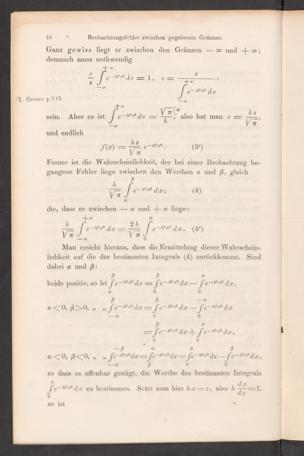 16 Beobachtungsfehler zwischen gegebenen Gränzen.
Ganz gewiss liegt er zwischen den Gränzen — ∞ und + ∞;
demnach muss nothwendig
sein. Aber es ist ∫ e^{-h²x²} dx = √π/h, also hat man
und endlich
f(x) = hε/√π e^{-h²x²}. (3')
Ferner ist die Wahrscheinlichkeit, der bei einer Beobachtung be-
gangene Fehler liege zwischen den Werthen α und β, gleich
h/√π ∫_α^β e^{-h²x²} dx; (4)
die, dass er zwischen — α und + α liege:
h/√π ∫_{-α}^{+α} e^{-h²x²} dx = 2h/√π ∫_0^α e^{-h²x²} dx. (4')
Man ersieht hieraus, dass die Ermittelung dieser Wahrschein-
lichkeit auf die des bestimmten Integrals (4) zurückkommt. Sind
dabei α und β:
beide positiv, so ist ∫_α^β e^{-h²x²} dx = ∫_0^β e^{-h²x²} dx — ∫_0^α e^{-h²x²} dx,
α<0, β>0, „ „
= ∫_0^β e^{-h²x²} dx + ∫_0^α e^{-h²x²} dx,
α<0, β<0, „ „
so dass es offenbar genügt, die Werthe des bestimmten Integrals
∫_0^α e^{-h²x²} dx zu bestimmen. Setzt man hier hx = z, also h dx/dz = 1,
so ist